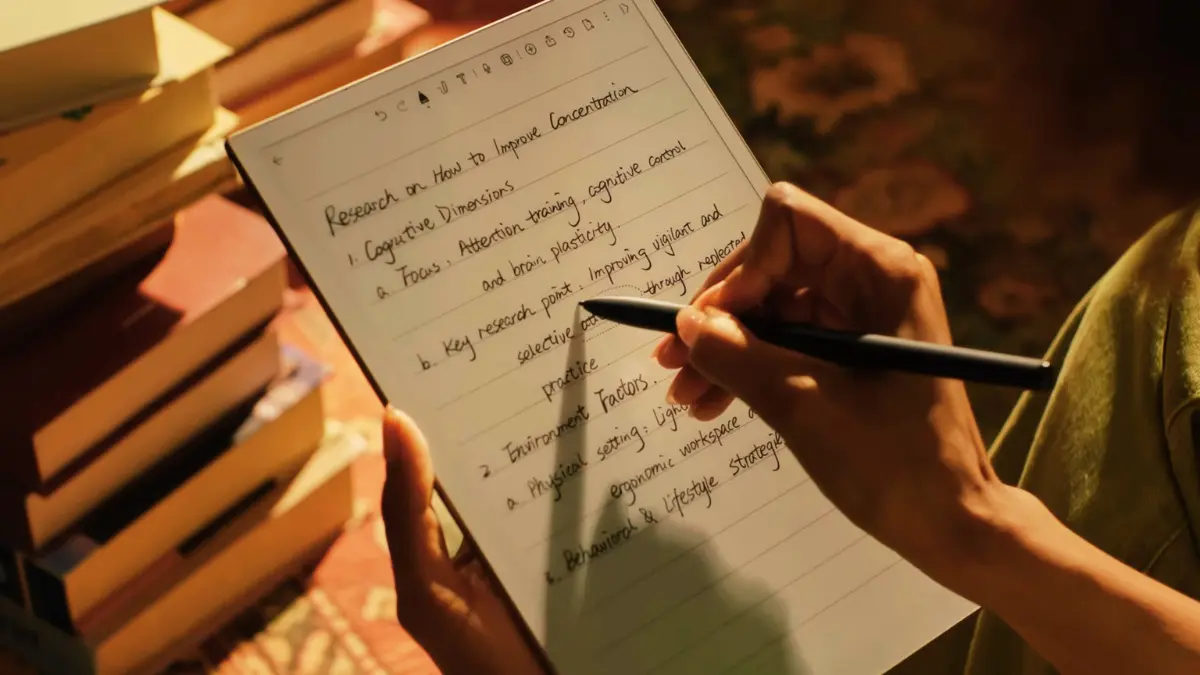 Research on How to Improve Concentration
1. Cognitive Dimensions
a. Focus, Attention training, cognitive control
and brain plasticity.
b. Key research point. Improving vigilant and
selective through
practice
2 Environment Factors.
a. Physical setting:
ergonomic workspace
Behavioral & Lifestyle strategies